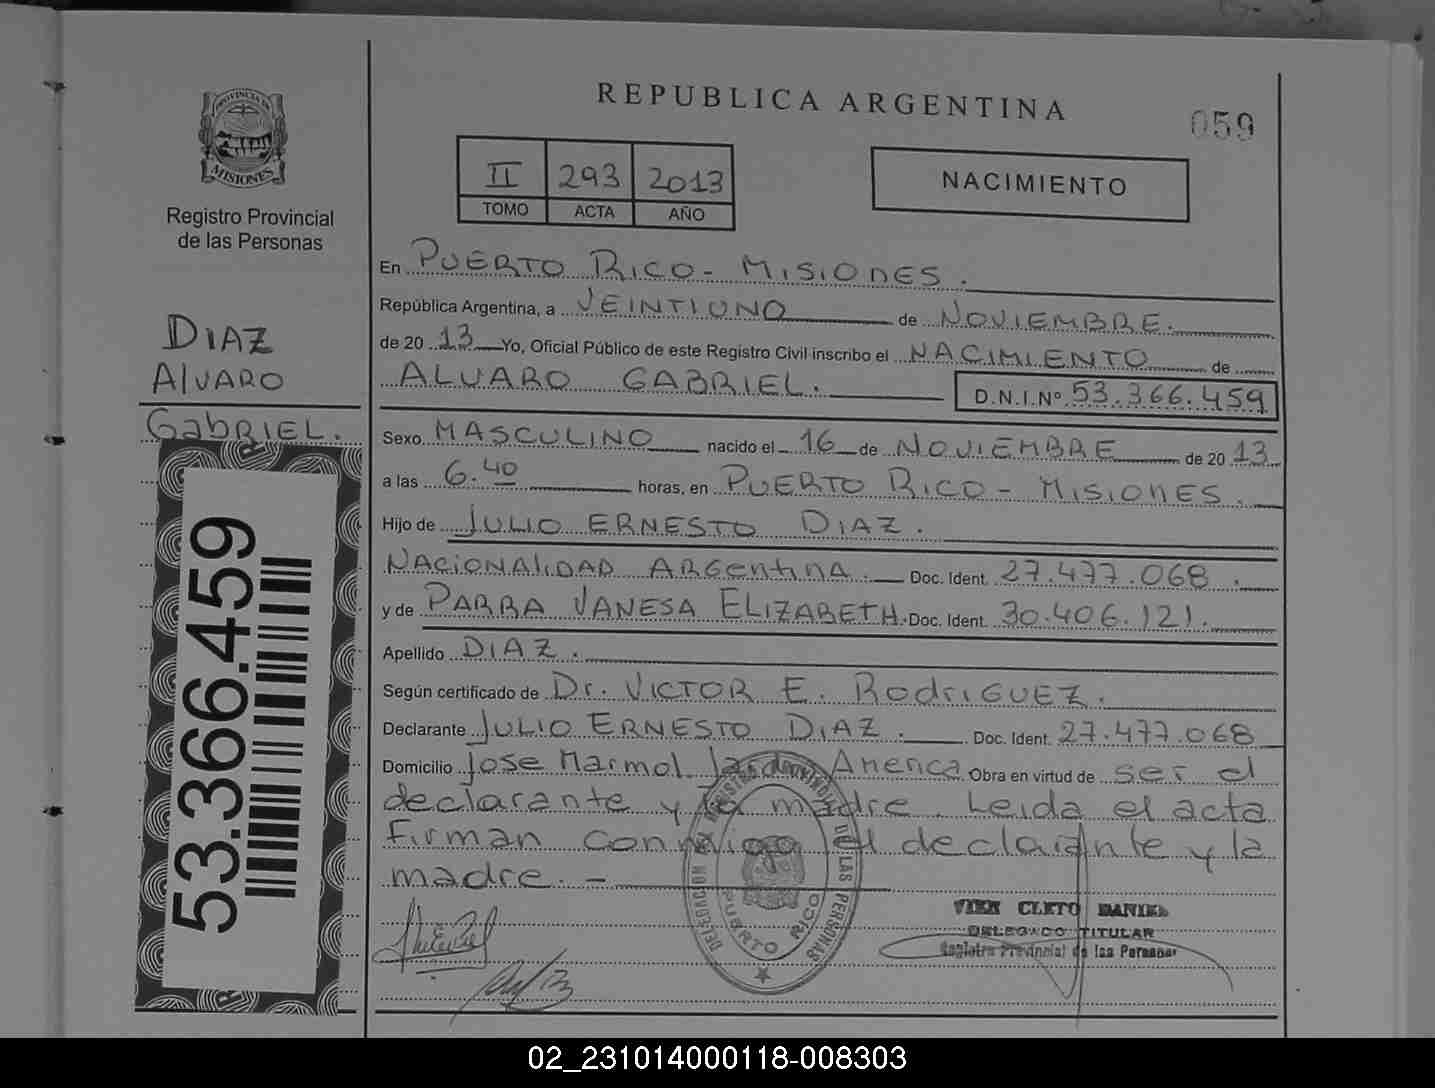 REPUBLICA ARGENTINA
059
PROVINCIA DE
MISIONES
Registro Provincial
de las Personas
II 293 2013
TOMO ACTA AÑO
NACIMIENTO
DIAZ
Alvaro
GabRIEL.
53.366.459
En PUERTO RICO - MISIONES.
República Argentina, a VEINTIUNO de NOVIEMBRE.
de 20 13 Yo, Oficial Público de este Registro Civil inscribo el NACIMIENTO de
ALVARO GABRIEL. D.N.I.Nº 53.366.459
Sexo MASCULINO nacido el 16 de NOVIEMBRE de 20 13
a las 6.40 horas, en PUERTO RICO - MISIONES.
Hijo de JULIO ERNESTO DIAZ.
NACIONALIDAD ARGENTINA. Doc. Ident. 27.477.068.
y de PARRA VANESA ELIZABETH. Doc. Ident. 30.406.121.
Apellido DIAZ.
Según certificado de Dr. VICTOR E. RODRIGUEZ.
Declarante JULIO ERNESTO DIAZ. Doc. Ident. 27.477.068
Domicilio Jose Marmol Jardin America Obra en virtud de ser el
declarante y la madre. Leida el acta
firman conmigo el declarante y la
madre. -
DELEGACION DEL REGISTRO PROVINCIAL DE LAS PERSONAS
PUERTO RICO
CLETO DANIEL
DELEGADO TITULAR
Registro Provincial de las Personas
02_231014000118-008303